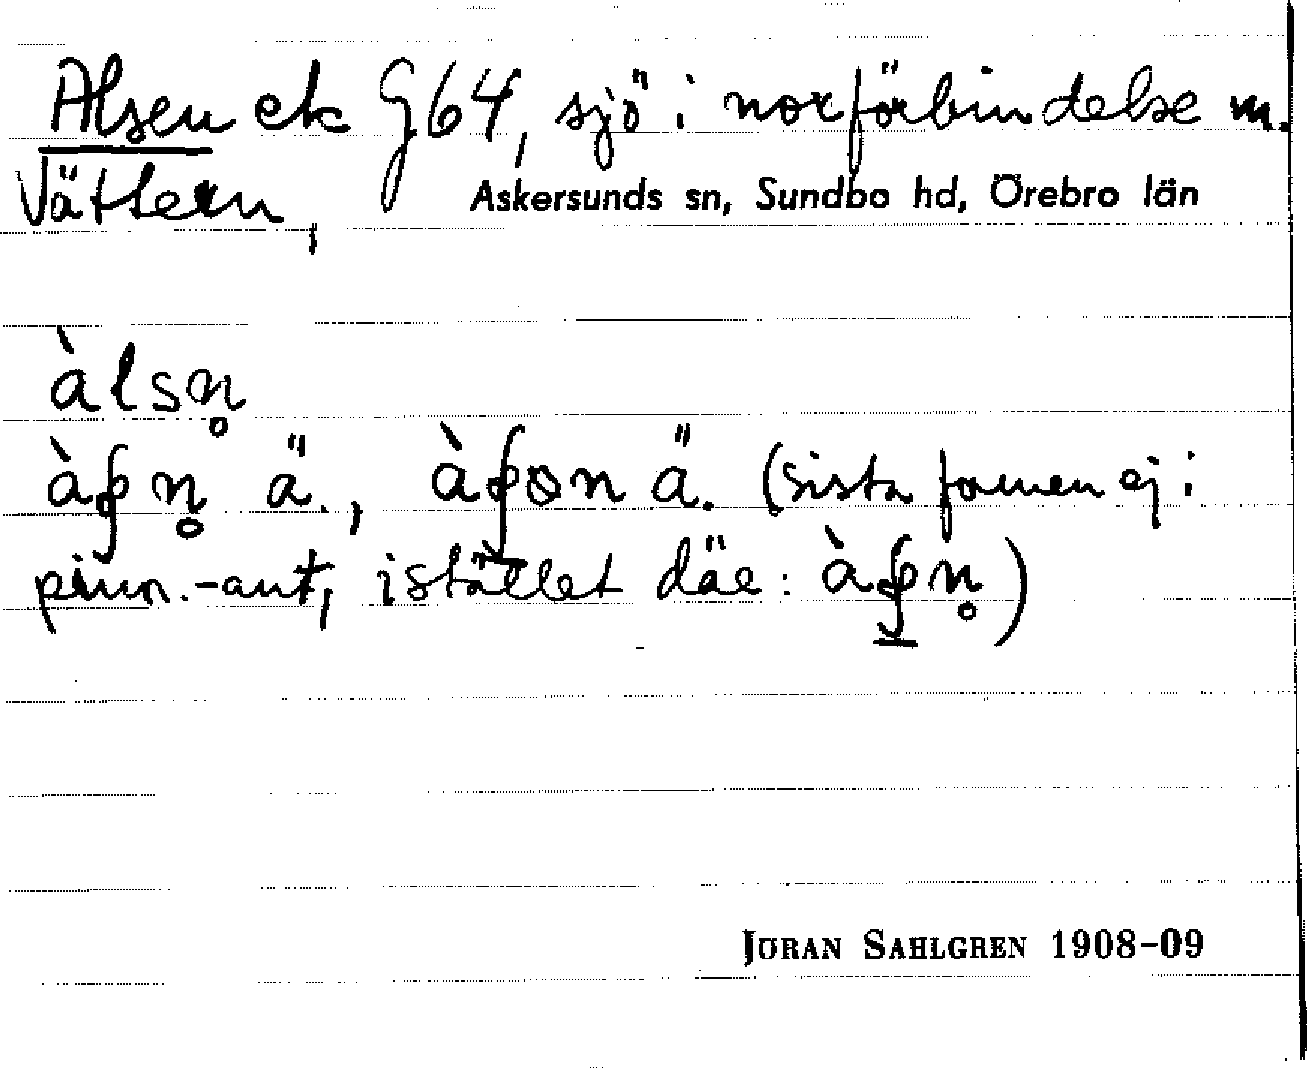 Alsen ek G64, sjö i norförbindelse m.
Vättern, Askersunds sn, Sundbo hd, Örebro län
àlsn̥
n̥ ä., ä. (sista formen ej i
prim.-ant, istället där: n̥)
JÖRAN SAHLGREN 1908-09